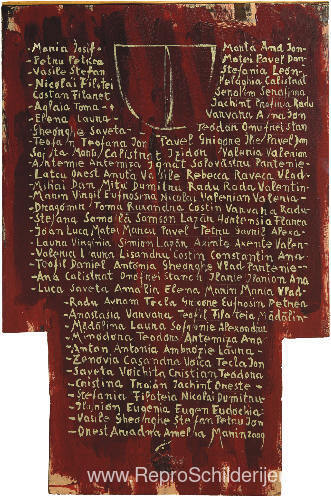 -Maria Iosif-
-Petru Petrea
-Vasile Stefan
-Nicolai Filotei
Costan Filaret
-Aglaia Toma-
-Elena Laura
Gheorghe Saveta-
Marta Ana Ion-
Matei Pavel Dan-
Stefania Leon-
Pelaghia Calistrat
Serafim Serafima
Iachint Profira Radu
Varvara Ana Ion-
Teodor Onufrei Stan
-Teofan Teofana Ion Pavel Grigore Ilie Pavel Ion
Sofita Maria Calistrat Isidor Valeria Valerian
Artemie Artemiza Ignat Pantelie
-Latcu Orest Anuta Vasile Rebecca Raveca Vlad-
Mihai Dan Mitu Dumitru Radu Radu Valentin-
-Marin Virgil Eufrosina Nicolai Valerian Valeria-
-Dragomir Toma Ruxandra Costin Varvara Radu-
-Stefana Samoila Samson Lazar Hortensia Filaret
-Ioan Luca Matei Marcu Pavel Petru Gavril Alexa-
-Laura Virginia Simion Lazar Axinte Axente Valer-
-Valeriu Laura Lisandru Costin Constantin Ana-
-Teofil Daniel Antonia Gheorghe Vlad Pantelie-
-Ana Calistrat Onofrei Stancu Ilarie Ilarion Ana
-Luca Saveta Amalia Elena Marin Maria Vlad-
-Radu Avram Tecla Grigore Eufrosin Petrea
-Anastasia Varvara Teofil Filoteia Mădălin-
-Mădălina Laura Sofronie Alexandru
-Minodora Teodora Artemiza Ana-
-Anton Antonia Ambrozie Laura-
-Zenovia Casandra Voica Tecla Ion
-Saveta Voichita Cristian Teodora
-Cristina Traian Iachint Oreste-
-Stefania Filoteia Nicolai Dumitru-
-Ilarion Eugenia Eugen Eudochia-
-Vasile Gheorghe Stefan Petru Ion
-Orest Ariadna Amelia Marin 2009
www.ReproSchilderijen